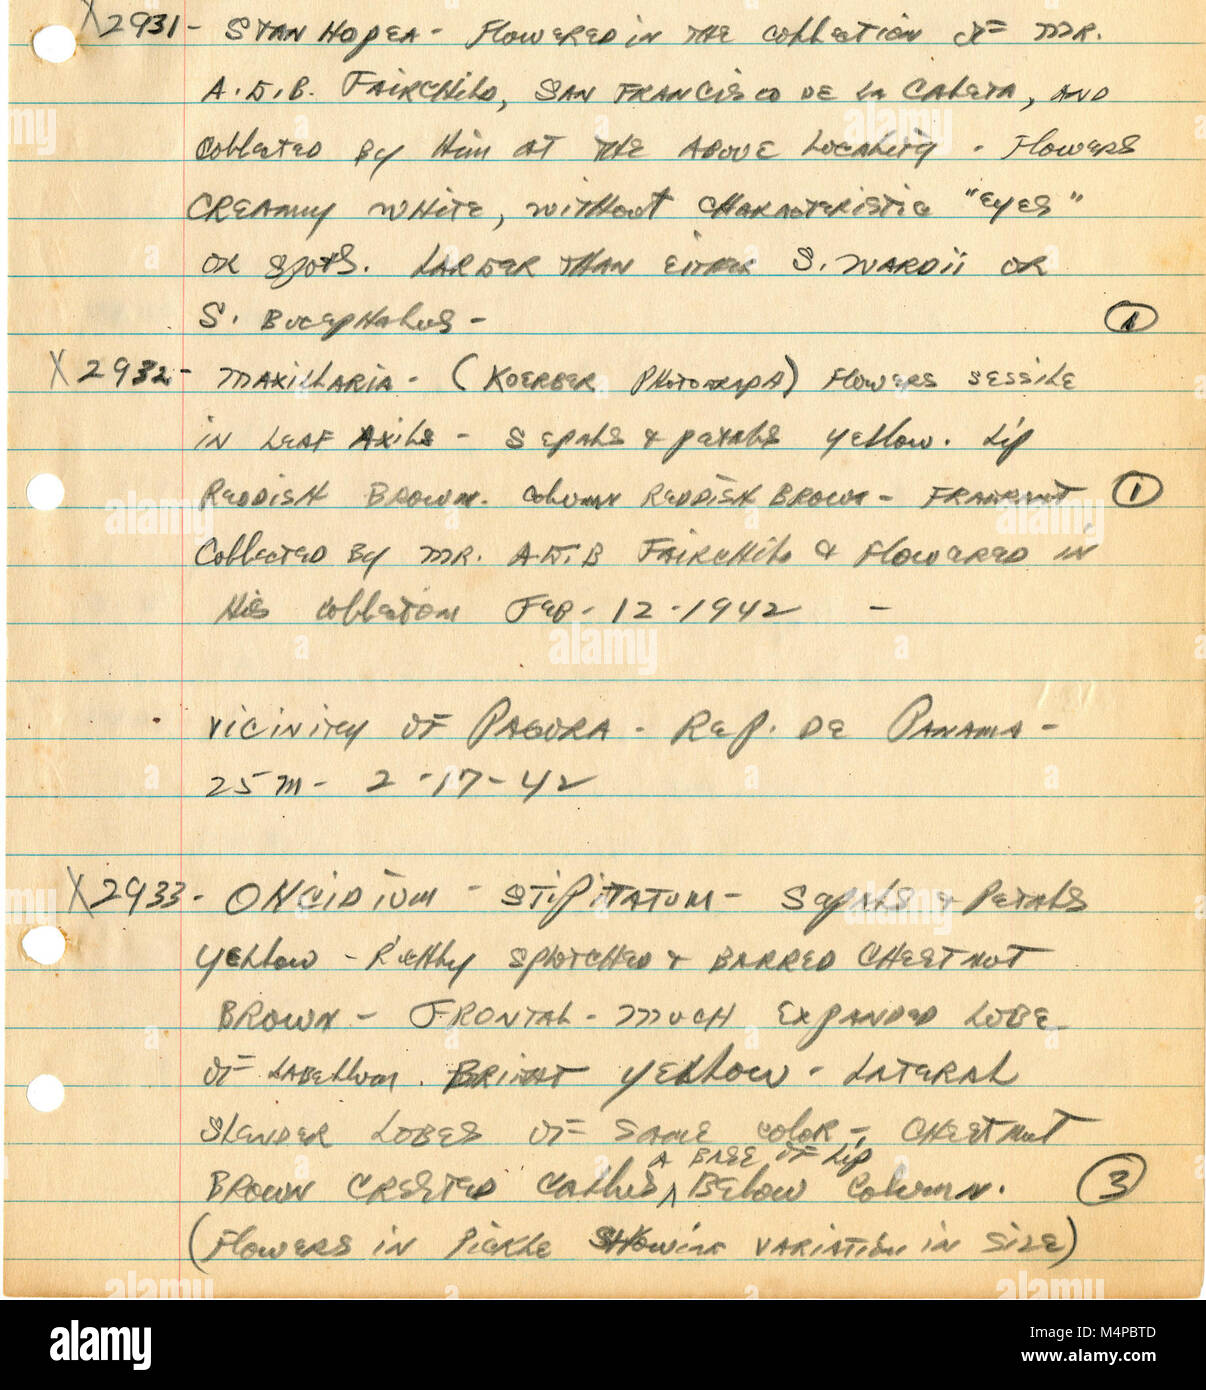 X 2931 - STANHOPEA - FLOWERED IN THE COLLECTION OF MR.
A.E.B. FAIRCHILD, SAN FRANCISCO DE LA CALETA, AND
COLLECTED BY HIM AT THE ABOVE LOCALITY. FLOWERS
CREAMY WHITE, WITHOUT CHARACTERISTIC "EYES"
OR SPOTS. LARGER THAN EITHER S. WARDII OR
S. BUCEPHALUS -
1
X 2932 - MAXILLARIA - (KOERBER PHOTOGRAPH) FLOWERS SESSILE
IN LEAF AXILS - SEPALS & PETALS YELLOW. LIP
REDDISH BROWN. COLUMN REDDISH BROWN - FRAGRANT 1
COLLECTED BY MR. A.E.B FAIRCHILD & FLOWERED IN
HIS COLLECTION FEB - 12 - 1942 -
VICINITY OF PACORA - REP. DE PANAMA -
25 M - 2 - 17 - 42
X 2933 - ONCIDIUM - STIPITATUM - SEPALS & PETALS
YELLOW - RICHLY SPLOTCHED & BARRED CHESTNUT
BROWN - FRONTAL - MUCH EXPANDED LOBE
OF LABELLUM. BRIGHT YELLOW - LATERAL
SLENDER LOBES OF SAME COLOR -, CHESTNUT
BROWN CRESTED CALLUS ^ A BASE OF LIP BELOW COLUMN. 3
(FLOWERS IN PICKLE SHOWING VARIATION IN SIZE)
alamy
Image ID: M4PBTD
www.alamy.com